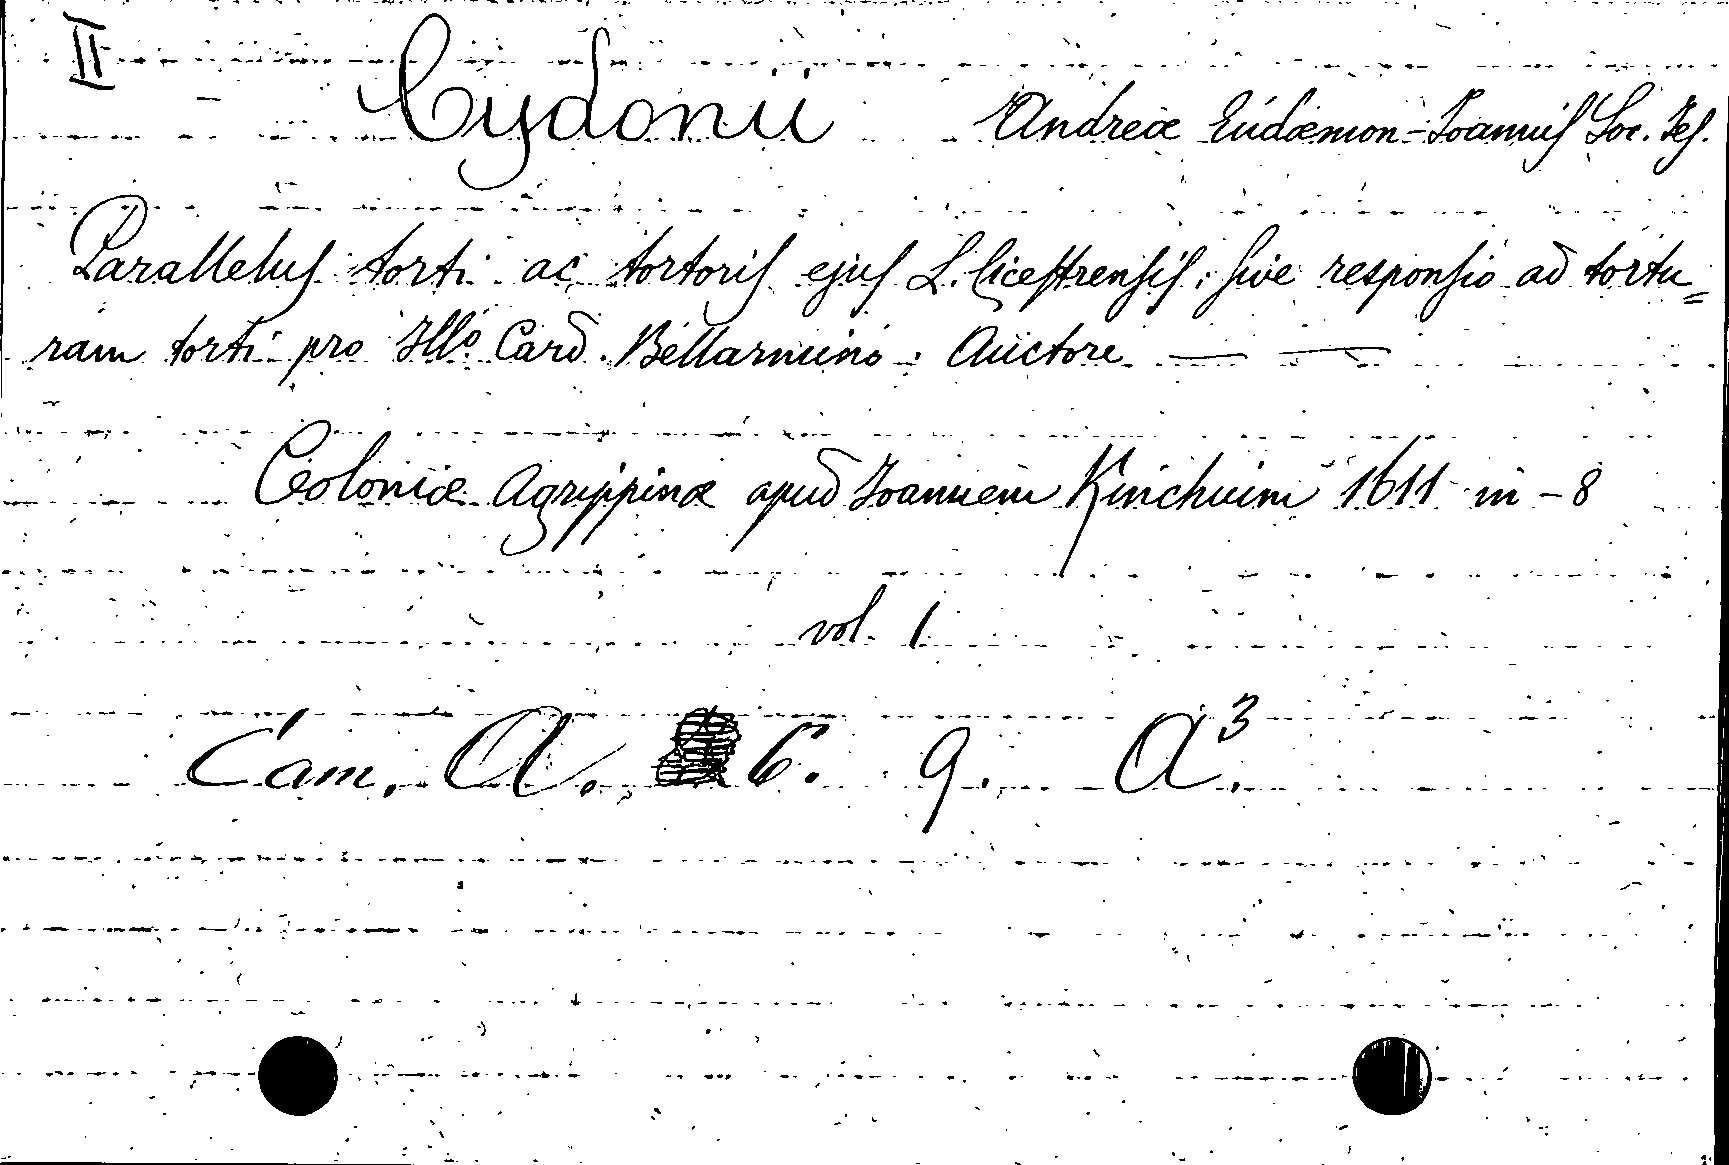 II Cydonii Andreæ Eudæmon-Joannis Soc. Jes.
Parallelus torti ac tortoris ejus L. Cicestrensis: sive responsio ad tortu=
ram torti pro Illo. Card. Bellarmino: Auctore — —
Coloniæ Agrippinæ apud Joannem Kinchium 1611 in-8
vol. 1
Cam. A. 6. 9. A3.